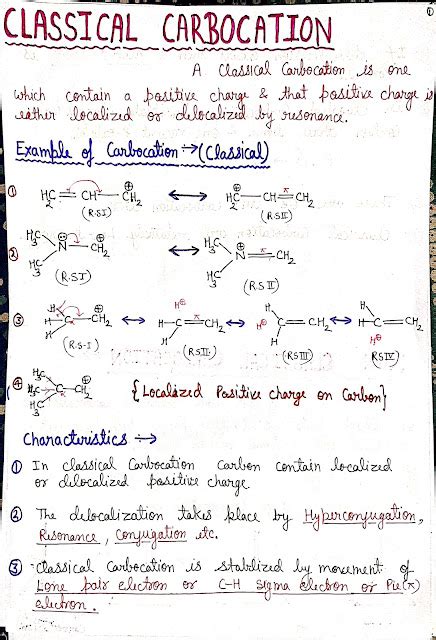 ①
CLASSICAL CARBOCATION
A Classical Carbocation is one
which contain a positive charge & that positive charge is
either localized or delocalized by resonance.
Example of Carbocation → (Classical)
① H₂C=CH-CH₂ ⊕ ↔ ⊕ H₂C-CH=CH₂ π
(R.S I) (R.S II)
② H₃C H₃C N-CH₂ ⊕ ↔ H₃C H₃C N⊕=CH₂
(R.S I) (R.S II)
③ H H-C-CH₂ ⊕ H ↔ H⊕ H-C=CH₂ π H ↔ H H⊕ C=CH₂ H ↔ H H-C=CH₂ H⊕
(R.S-I) (R.S II) (R.S III) (R.S IV)
④ H₃C H₃C-C-CH₂ ⊕ H₃C {Localized Positive charge on Carbon}
Characteristics →
① In classical Carbocation Carbon contain localized
or delocalized positive charge
② The delocalization takes place by Hyperconjugation,
Resonance, Conjugation etc.
③ Classical Carbocation is stablized by movement of
Lone pair electron or C-H Sigma electron or Pie(π)
electron.